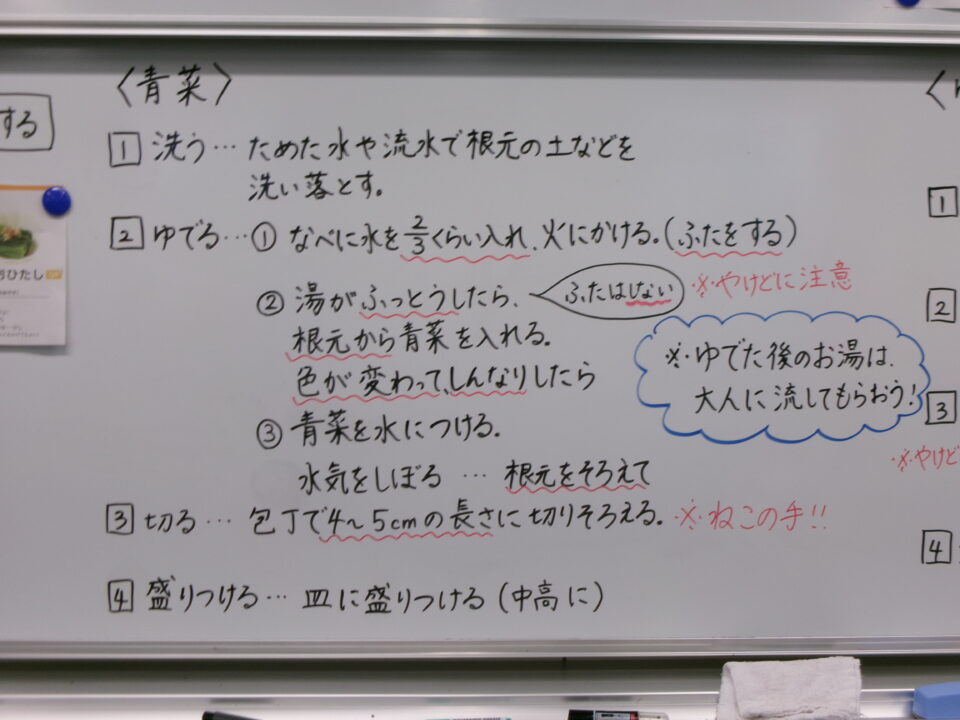 〈青菜〉
する
1 洗う… ためた水や流水で根元の土などを
洗い落とす。
2 ゆでる…① なべに水を2/3くらい入れ、火にかける。(ふたをする)
② 湯がふっとうしたら、
ふたはしない
※やけどに注意
根元から青菜を入れる。
色が変わって、しんなりしたら
※ゆでた後のお湯は、
大人に流してもらおう!
③ 青菜を水につける。
水気をしぼる … 根元をそろえて
3 切る… 包丁で4〜5cmの長さに切りそろえる。 ※ねこの手!!
4 盛りつける… 皿に盛りつける(中高に)
おひたし
1
2
3
※やけど
4